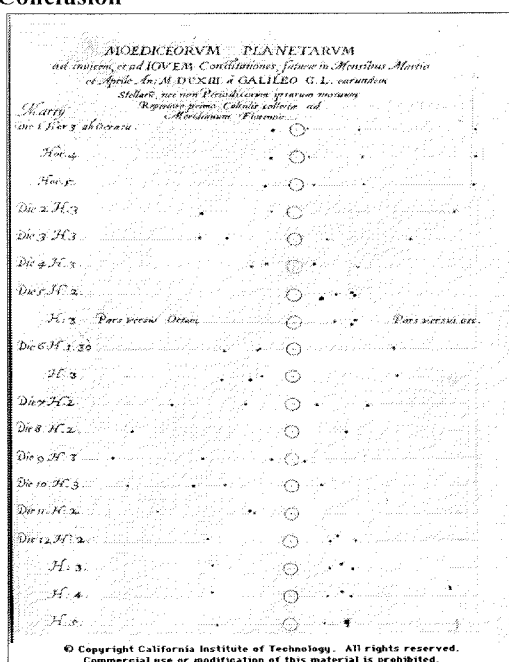 Conclusion
MOEDICEORVM PLANETARVM
ad invicem, et ad IOVEM Constitutiones, futuræ in Mensibus Martio
et Aprile An: M DCXIII. à GALILEO G.L. earundem
Stellarū, nec non Periodicorum ipsarum motuum
Repertore primo Calculis collectæ ad
Meridianum Florentie
Martij
Die 1 Hor 3 ab Occasu
Hor. 4
Hor. 5
Die 2 H. 3
Die 3 H. 3
Die 4 H. 3
Die 5 H. 2
H. 3 Pars versus Ortum Pars versus occ.
Die 6 H. 1. 30
H. 3
Die 7 H. 2
Die 8 H. 2
Die 9 H. 3
Die 10 H. 3
Die 11 H. 2
Die 12 H: 2
H: 3
H. 4
H. 5
© Copyright California Institute of Technology. All rights reserved.
Commercial use or modification of this material is prohibited.